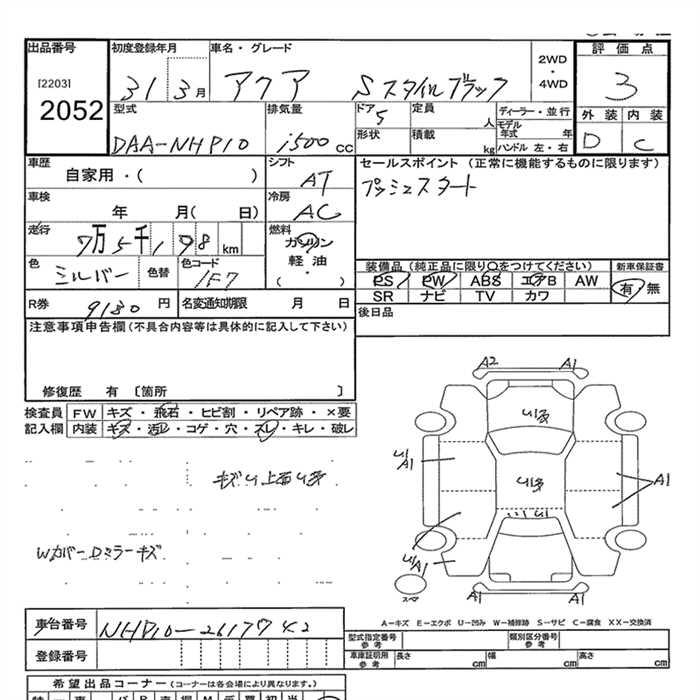 出品番号 初度登録年月 車名・グレード 2WD・4WD 評価点
[2203] 31 3月 アクア Sスタイルブラック 3
2052 型式 排気量 ドア 5 定員 人 ディーラー・並行 外装 内装
DAA-NHP10 1500 CC 形状 積載 kg モデル年式 年 ハンドル 左・右 D C
車歴 自家用・( ) シフト AT セールスポイント (正常に機能するものに限ります)
車検 年 月( 日) 冷房 AC プッシュスタート
走行 7万5千198km 燃料 ガソリン 軽油 ( )
色 シルバー 色替 色コード 1F7 装備品 (純正品に限り○をつけてください) 新車保証書
PS PW ABS エアB AW 有 無
SR ナビ TV カワ
R券 9180 円 名変通知期限 月 日 後日品
注意事項申告欄(不具合内容等は具体的に記入して下さい)
修復歴 有 [箇所 ]
検査員 FW キズ・飛石・ヒビ割・リペア跡・×要
記入欄 内装 キズ・汚レ・コゲ・穴・スレ・キレ・破レ
A2 A1
A1
A1
A1
A1 A1
スペ
WカバーDミラーキズ
A-キズ E-エクボ U-凹み W-補修跡 S-サビ C-腐食 XX-交換済
車台番号 NHP10-2617742
登録番号
型式指定番号 参考 類別区分番号 参考
車庫証明用 参考 長さ cm 幅 cm 高さ cm
希望出品コーナー (コーナーは各会場により異なります。)